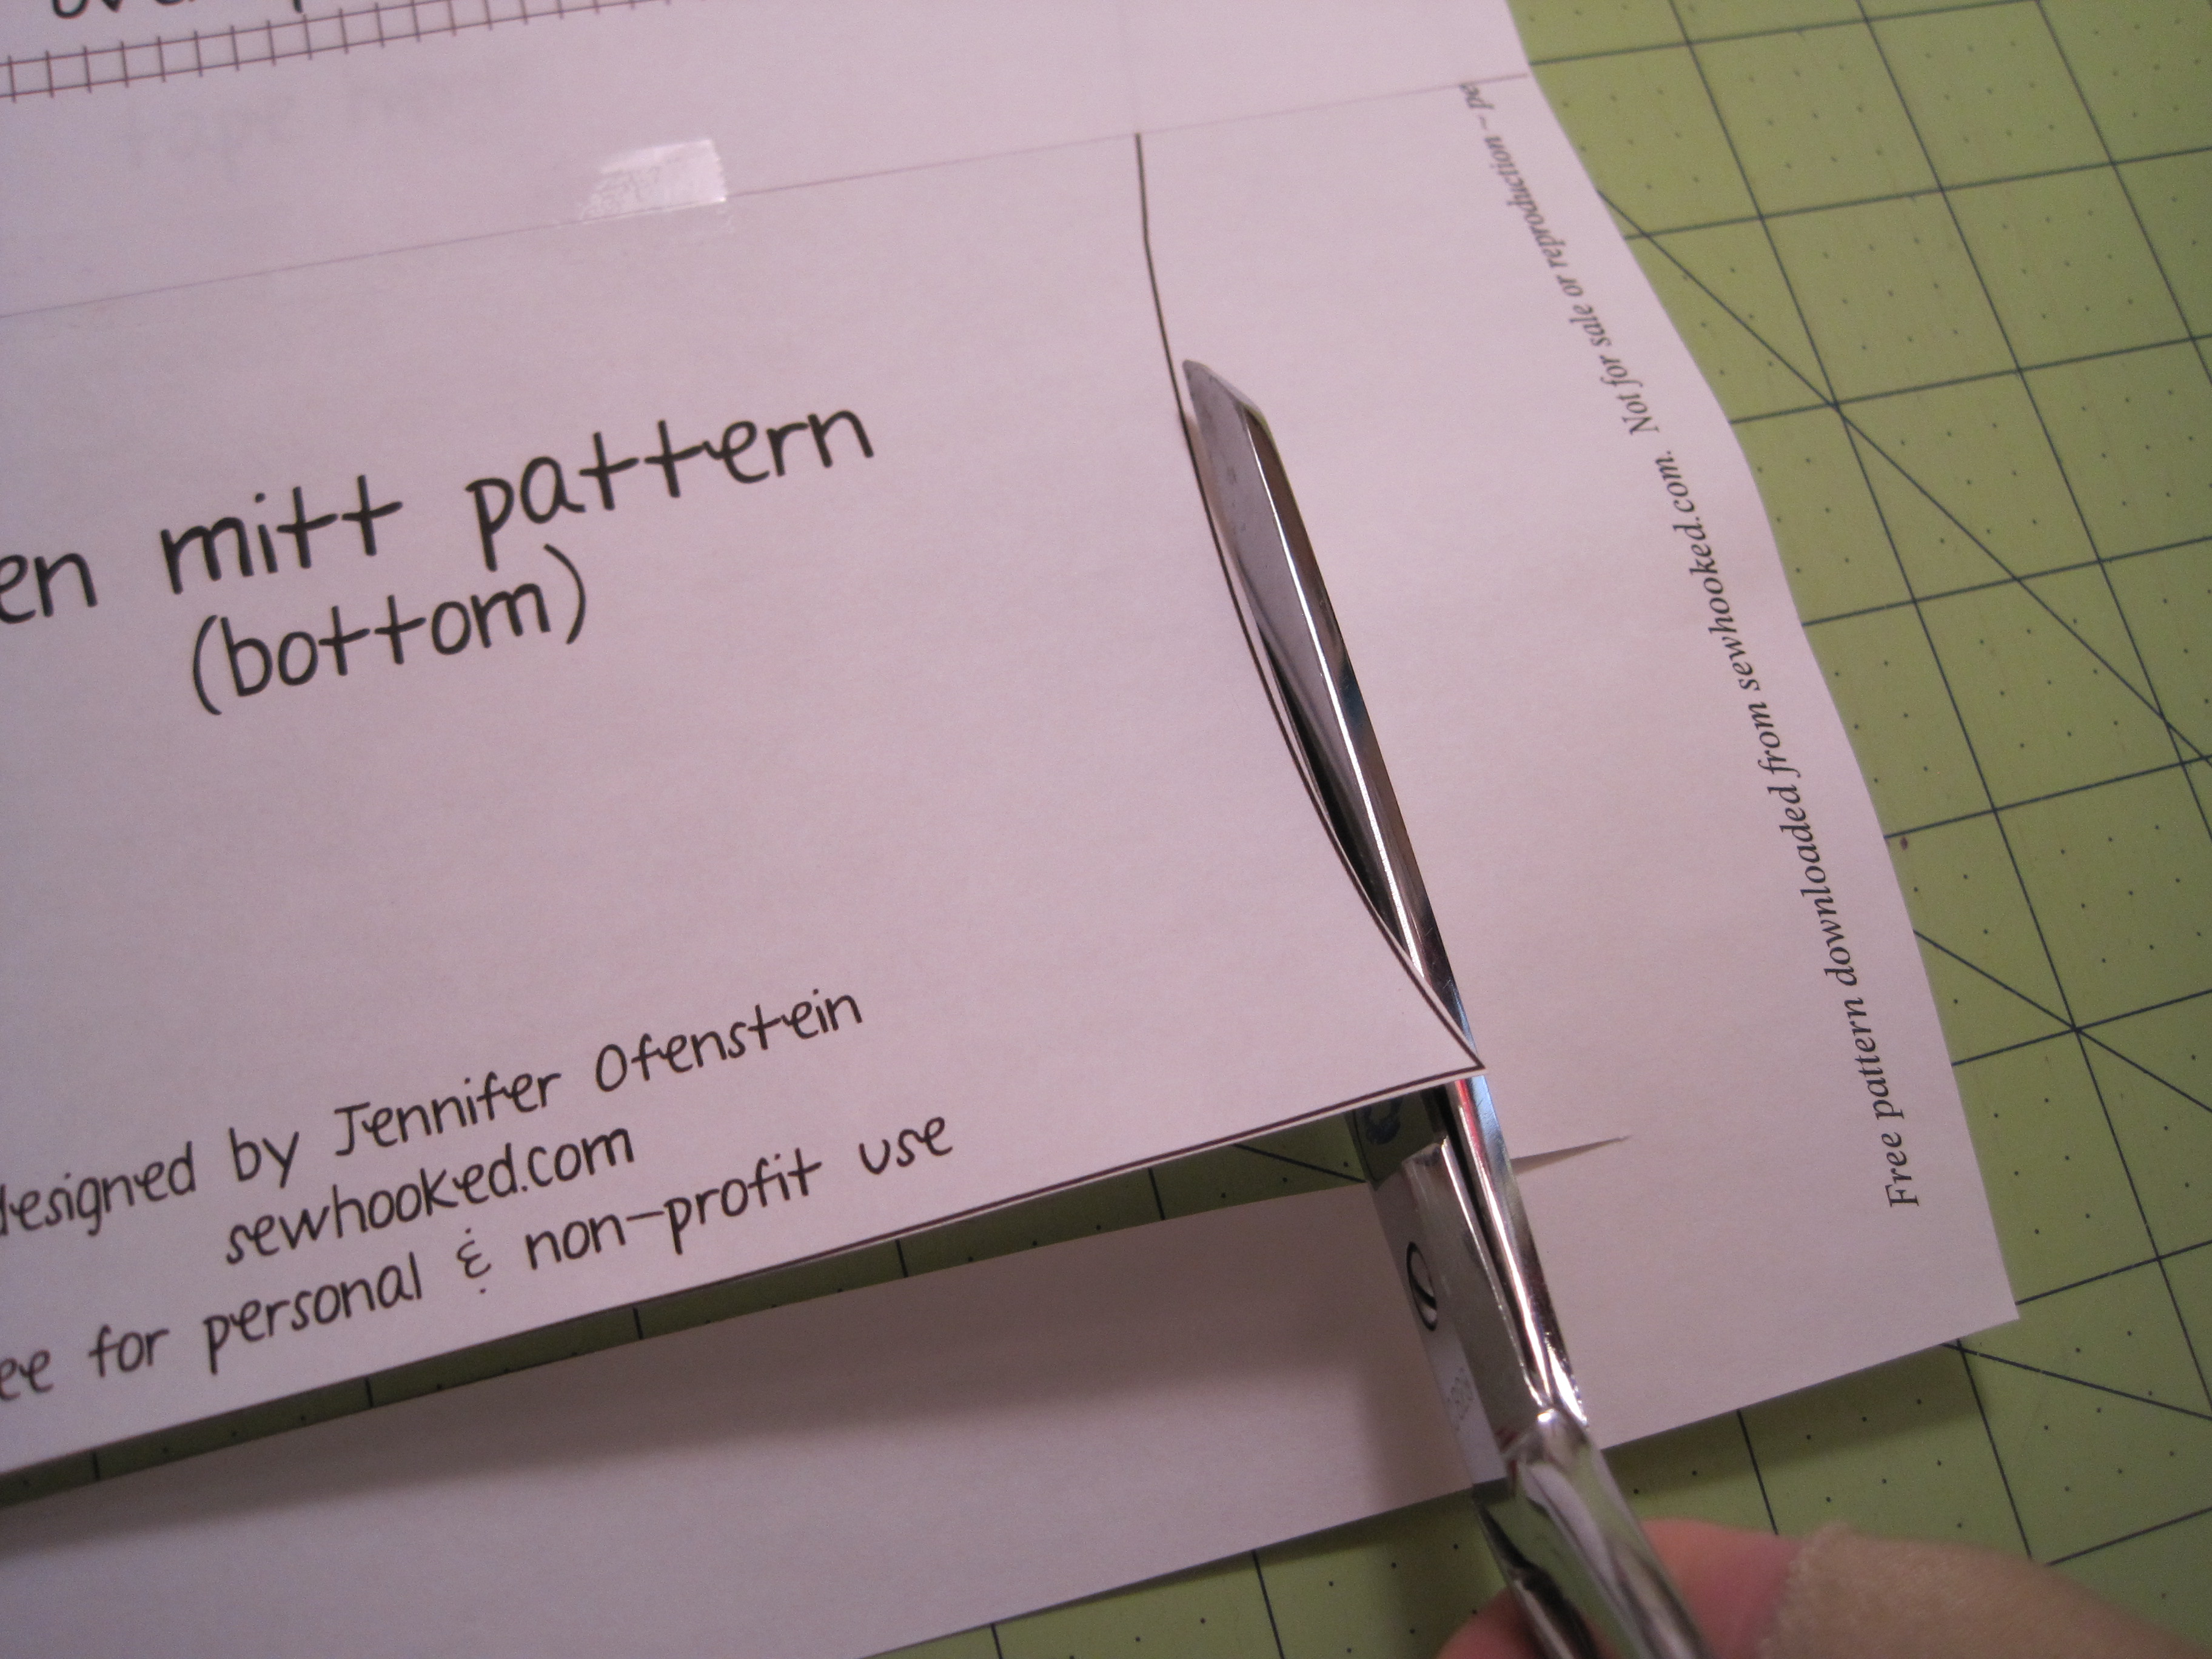 tape here
en mitt pattern
(bottom)
designed by Jennifer Ofenstein
sewhooked.com
ee for personal & non-profit use
Free pattern downloaded from sewhooked.com. Not for sale or reproduction ~ pe